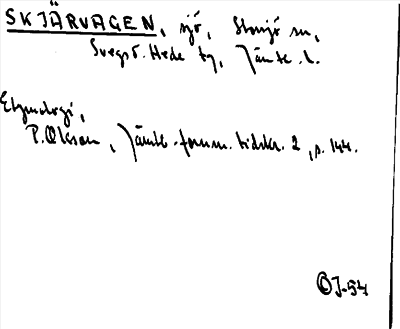 SKJÄRVAGEN, sjö, Storsjö sn,
Svegs o. Hede tg, Jämtl. l.
Etymologi,
P. Olsson, Jämtl. fornm. tidskr. 2, s. 144.
OJ-54